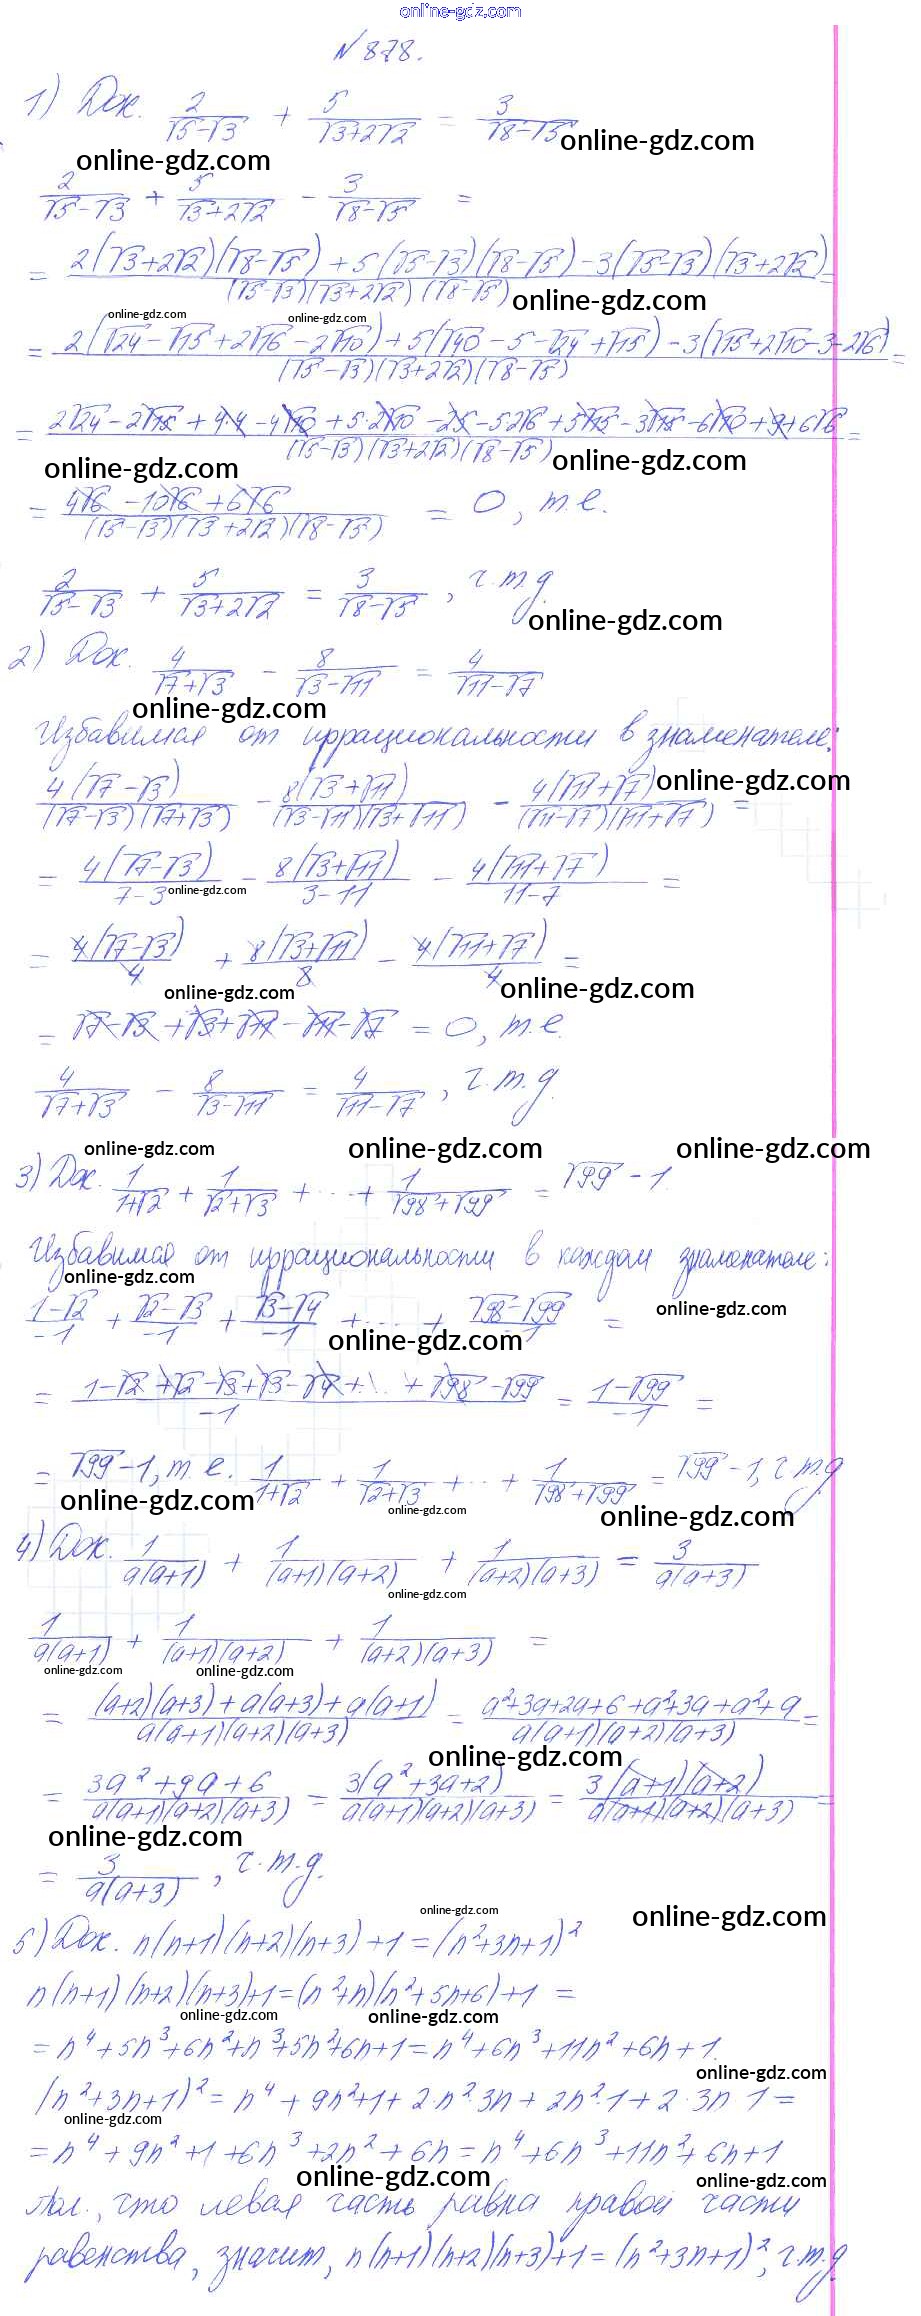 online-gdz.com
№ 878.
1) Док. 2/(√5-√3) + 5/(√3+2√2) = 3/(√8-√5)
online-gdz.com
online-gdz.com
2/(√5-√3) + 5/(√3+2√2) - 3/(√8-√5) =
= (2(√3+2√2)(√8-√5) + 5(√5-√3)(√8-√5) - 3(√5-√3)(√3+2√2))/((√5-√3)(√3+2√2)(√8-√5)) =
online-gdz.com
online-gdz.com
online-gdz.com
= (2(√24-√15+2√16-2√10)+5(√40-5-√24+√15)-3(√15+2√10-3-2√6))/((√5-√3)(√3+2√2)(√8-√5)) =
= (2√24-2√15+4·4-4√10+5·2√10-25-5·2√6+5√15-3√15-6√10+9+6√6)/((√5-√3)(√3+2√2)(√8-√5)) =
online-gdz.com
online-gdz.com
= (4√6-10√6+6√6)/((√5-√3)(√3+2√2)(√8-√5)) = 0, т.е.
2/(√5-√3) + 5/(√3+2√2) = 3/(√8-√5), ч.т.д.
online-gdz.com
2) Док. 4/(√7+√3) - 8/(√3-√11) = 4/(√11-√7)
online-gdz.com
Избавимся от иррациональности в знаменателе:
4(√7-√3)/((√7-√3)(√7+√3)) - 8(√3+√11)/((√3-√11)(√3+√11)) - 4(√11+√7)/((√11-√7)(√11+√7)) =
online-gdz.com
= 4(√7-√3)/(7-3) - 8(√3+√11)/(3-11) - 4(√11+√7)/(11-7) =
online-gdz.com
= 4(√7-√3)/4 + 8(√3+√11)/8 - 4(√11+√7)/4 =
online-gdz.com
online-gdz.com
= √7-√3+√3+√11-√11-√7 = 0, т.е.
4/(√7+√3) - 8/(√3-√11) = 4/(√11-√7), ч.т.д.
online-gdz.com
online-gdz.com
online-gdz.com
3) Док. 1/(1+√2) + 1/(√2+√3) + ... + 1/(√98+√99) = √99 - 1
Избавимся от иррациональности в каждом знаменателе:
online-gdz.com
(1-√2)/-1 + (√2-√3)/-1 + (√3-√4)/-1 + ... + (√98-√99)/-1 =
online-gdz.com
online-gdz.com
= (1-√2+√2-√3+√3-√4+...+√98-√99)/-1 = (1-√99)/-1 =
= √99-1, т.е. 1/(1+√2) + 1/(√2+√3) + ... + 1/(√98+√99) = √99-1, ч.т.д.
online-gdz.com
online-gdz.com
online-gdz.com
4) Док. 1/(a(a+1)) + 1/((a+1)(a+2)) + 1/((a+2)(a+3)) = 3/(a(a+3))
online-gdz.com
1/(a(a+1)) + 1/((a+1)(a+2)) + 1/((a+2)(a+3)) =
online-gdz.com
online-gdz.com
= ((a+2)(a+3)+a(a+3)+a(a+1))/(a(a+1)(a+2)(a+3)) = (a²+3a+2a+6+a²+3a+a²+a)/(a(a+1)(a+2)(a+3)) =
online-gdz.com
= (3a²+9a+6)/(a(a+1)(a+2)(a+3)) = 3(a²+3a+2)/(a(a+1)(a+2)(a+3)) = 3(a+1)(a+2)/(a(a+1)(a+2)(a+3)) =
online-gdz.com
= 3/(a(a+3)), ч.т.д.
online-gdz.com
online-gdz.com
5) Док. n(n+1)(n+2)(n+3)+1=(n²+3n+1)²
n(n+1)(n+2)(n+3)+1=(n²+n)(n²+5n+6)+1 =
online-gdz.com
online-gdz.com
= n⁴+5n³+6n²+n³+5n²+6n+1= n⁴+6n³+11n²+6n+1.
online-gdz.com
(n²+3n+1)² = n⁴+9n²+1+2·n²·3n+2n²·1+2·3n·1 =
online-gdz.com
= n⁴+9n²+1+6n³+2n²+6n = n⁴+6n³+11n²+6n+1
online-gdz.com
online-gdz.com
Пол., что левая часть равна правой части
равенства, значит, n(n+1)(n+2)(n+3)+1=(n²+3n+1)², ч.т.д.